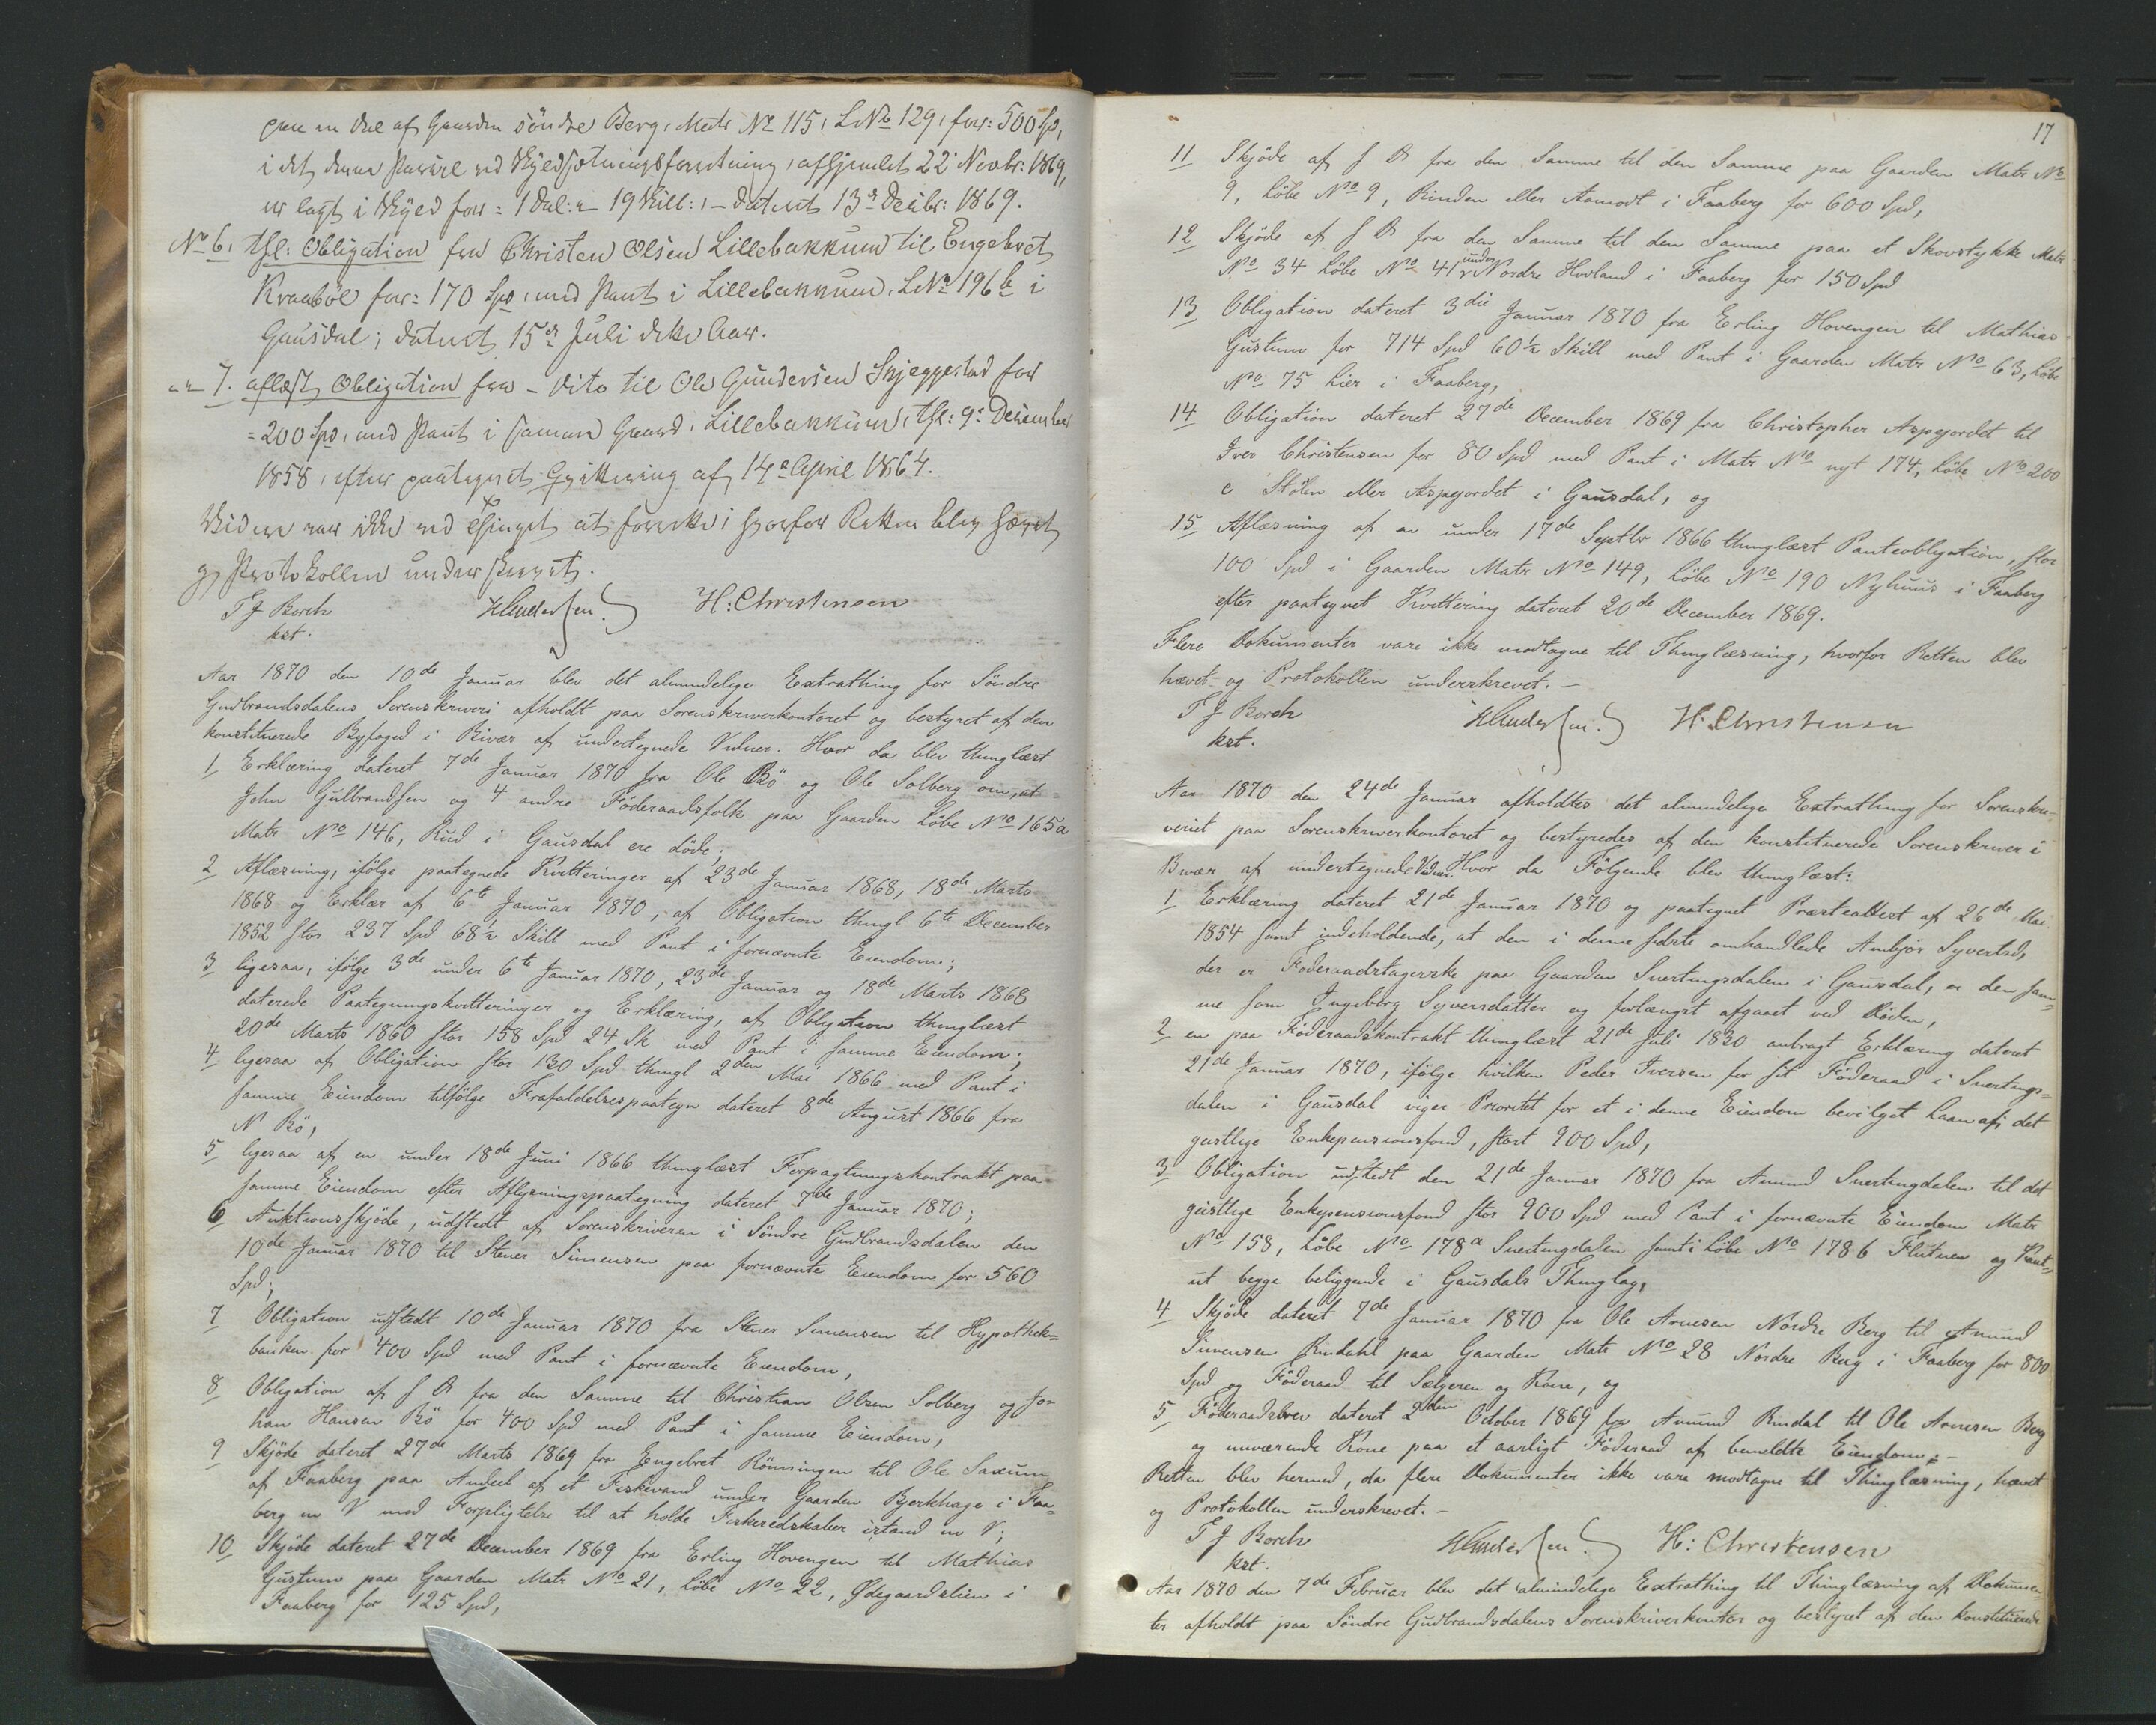 paa en Deel af Gaarden söndre Berg, Matr No 115, LNo 129, for: 500 Spd,
i det denne Parcel ved Skyldsætningsforretning, afhjemlet 22 Novbr: 1869,
er lagt i Skyld for = 1 Dal: - 19 Skill: , - dateret 13de Decbr: 1869.
No 6. thl: Obligation fra Christen Olsen Lillebakkum til Engebret
Kraaböl for: 170 Spd, med Pant i Lillebakkum, LNo 196b i
Gausdal; dateret 15de Juli dette Aar.
" 7. aflæst Obligation fra - dito til Ole Gundersen Skjeggestad for
= 200 Spd, med Pant i samme Gaard, Lillebakkum, thl: 9de December
1858, efter paategnet Qvittering af 14de April 1864.
Videre var ikke ved Thinget at foretage, hvorfor Retten blev hævet
og Protokollen underskrevet.
T J Borch H: Christensen
kst.
Aar 1870 den 10de Januar blev det almindelige Extrathing for Söndre
Gudbrandsdalens Sorenskriveri afholdt paa Sorenskriverkontoret og bestyret af den
konstituerede Byfoged i Bivær af undertegnede Vidner. Hvor da blev thinglæst
1 Erklæring dateret 7de Januar 1870 fra Ole Bö og Ole Solberg om, at
John Gulbrandsen og 4 andre Föderaadsfolk paa Gaarden Löbe No 165a
Matr No 146, Rud i Gausdal ere döde;
2 Aflæsning, ifölge paategnede Kvitteringer af 23de Januar 1868, 18de Marts
1868 og Erklær af 6te Januar 1870, af Obligation thingl 6te December
1852 stor 237 Spd 68½ Skill med Pant i fornævnte Eiendom;
3 ligesaa, ifölge 3de under 6te Januar 1870, 23de Januar og 18de Marts 1868
daterede Paategningskvitteringer og Erklæring, af Obligation thinglæst
20de Marts 1860 stor 158 Spd 24 Sk med Pant i samme Eiendom;
4 ligesaa af Obligation stor 130 Spd thingl 2den Mai 1866 med Pant i
samme Eiendom tilfölge Frafaldelsespaategn dateret 8de August 1866 fra
N Bö,
5 ligesaa af en under 18de Juni 1866 thinglæst Forpagtningskontrakt paa
samme Eiendom efter Aflysningspaategning dateret 7de Januar 1870;
6 Auktionsskjöde, udstedt af Sorenskriveren i Söndre Gudbrandsdalen den
10de Januar 1870 til Stener Simensen paa fornævnte Eiendom for 560
Spd;
7 Obligation udstedt 10de Januar 1870 fra Stener Simensen til Hypothek=
banken for 400 Spd med Pant i fornævnte Eiendom,
8 Obligation af s D fra den Samme til Christian Olsen Solberg og Jo=
han Hansen Bö for 400 Spd med Pant i samme Eiendom,
9 Skjöde dateret 27de Marts 1869 fra Engebret Rönningen til Ole Saxum
af Faaberg paa Andeel af et Fiskevand under Gaarden Bjerkhage i Faa=
berg m V mod Forpligtelse til at holde Fiskeredskaber istand m V;
10 Skjöde dateret 27de December 1869 fra Erling Hovengen til Mathias
Gustum paa Gaarden Matr No 21, Löbe No 22, Ødegaardslien i
Faaberg for 125 Spd,
17
11 Skjöde af s D fra den Samme til den Samme paa Gaarden Matr No
9, Löbe No 9, Rinden eller Aamodt i Faaberg for 600 Spd,
12 Skjöde af s D fra den Samme til den Samme paa et Skovstykke Matr
No 34 Löbe No 41 under Nordre Hovland i Faaberg for 150 Spd
13 Obligation dateret 3die Januar 1870 fra Erling Hovengen til Mathias
Gustum for 714 Spd 60½ Skill med Pant i Gaarden Matr No 63, Löbe
No 75 Lier i Faaberg,
14 Obligation dateret 27de December 1869 fra Christopher Aspejordet til
Iver Christensen for 80 Spd med Pant i Matr No nyt 174, Löbe No 200
c Stölen eller Aspejordet i Gausdal, og
15 Aflæsning af en under 17de Septbr 1866 thinglæst Panteobligation, stor
100 Spd i Gaarden Matr No 149, Löbe No 190 Nyhuus i Faaberg
efter paategnet Kvittering dateret 20de December 1869.
Flere Dokumenter vare ikke modtagne til Thinglæsning, hvorfor Retten blev
hævet og Protokollen underskrevet. -
T J Borch H: Christensen
kst.
Aar 1870 den 24de Januar afholdtes det almindelige Extrathing for Sorenskri=
veriet paa Sorenskriverkontoret og bestyredes af den konstituerede Sorenskriver i
Bivær af undertegnede Vidner. Hvor da Fölgende blev thinglæst:
1 Erklæring dateret 21de Januar 1870 og paategnet Præsteattest af 26de Mai
1854 samt indeholdende, at den i denne sidste omhandlede Ambjör Syvertsd,
der er Föderaadstagerske paa Gaarden Svertingsdalen i Gausdal, er den sam=
me som Ingeborg Syversdatter og forlængst afgaaet ved Döden,
2 en paa Föderaadskontrakt thinglæst 21de Juli 1830 anbragt Erklæring dateret
21de Januar 1870, ifölge hvilken Peder Iversen for sit Föderaad i Svertings=
dalen i Gausdal viger Prioritet for et i denne Eiendom bevilget Laan af det
geistlige Enkepensionsfond, stort 900 Spd,
3 Obligation udstedt den 21de Januar 1870 fra Amund Svertingdalen til det
geistlige Enkepensionsfond stor 900 Spd med Pant i fornævnte Eiendom Matr
No 158, Löbe No 178a Svertingdalen samt i Löbe No 178b Flutuen og
begge beliggende i Gausdals Thinglag,
4 Skjöde dateret 7de Januar 1870 fra Ole Arnesen Nordre Berg til Amund
Simensen Rindahl paa Gaarden Matr No 28 Nordre Berg i Faaberg for 800
Spd og Föderaad til Sælgeren og Kone, og
5 Föderaadsbrev dateret 2den October 1869 fra Amund Rindal til Ole Arnesen Berg
og nuværende Kone paa et aarligt Föderaad af bemeldte Eiendom. -
Retten blev hermed, da flere Dokumenter ikke vare modtagne til Thinglæsning, hævet
og Protokollen underskrevet. -
T J Borch H: Christensen
kst.
Aar 1870 den 7de Februar blev det almindelige Extrathing til Thinglæsning af Dokumen=
ter afholdt paa Söndre Gudbrandsdalens Sorenskriverkontor og bestyret af den konstituerede